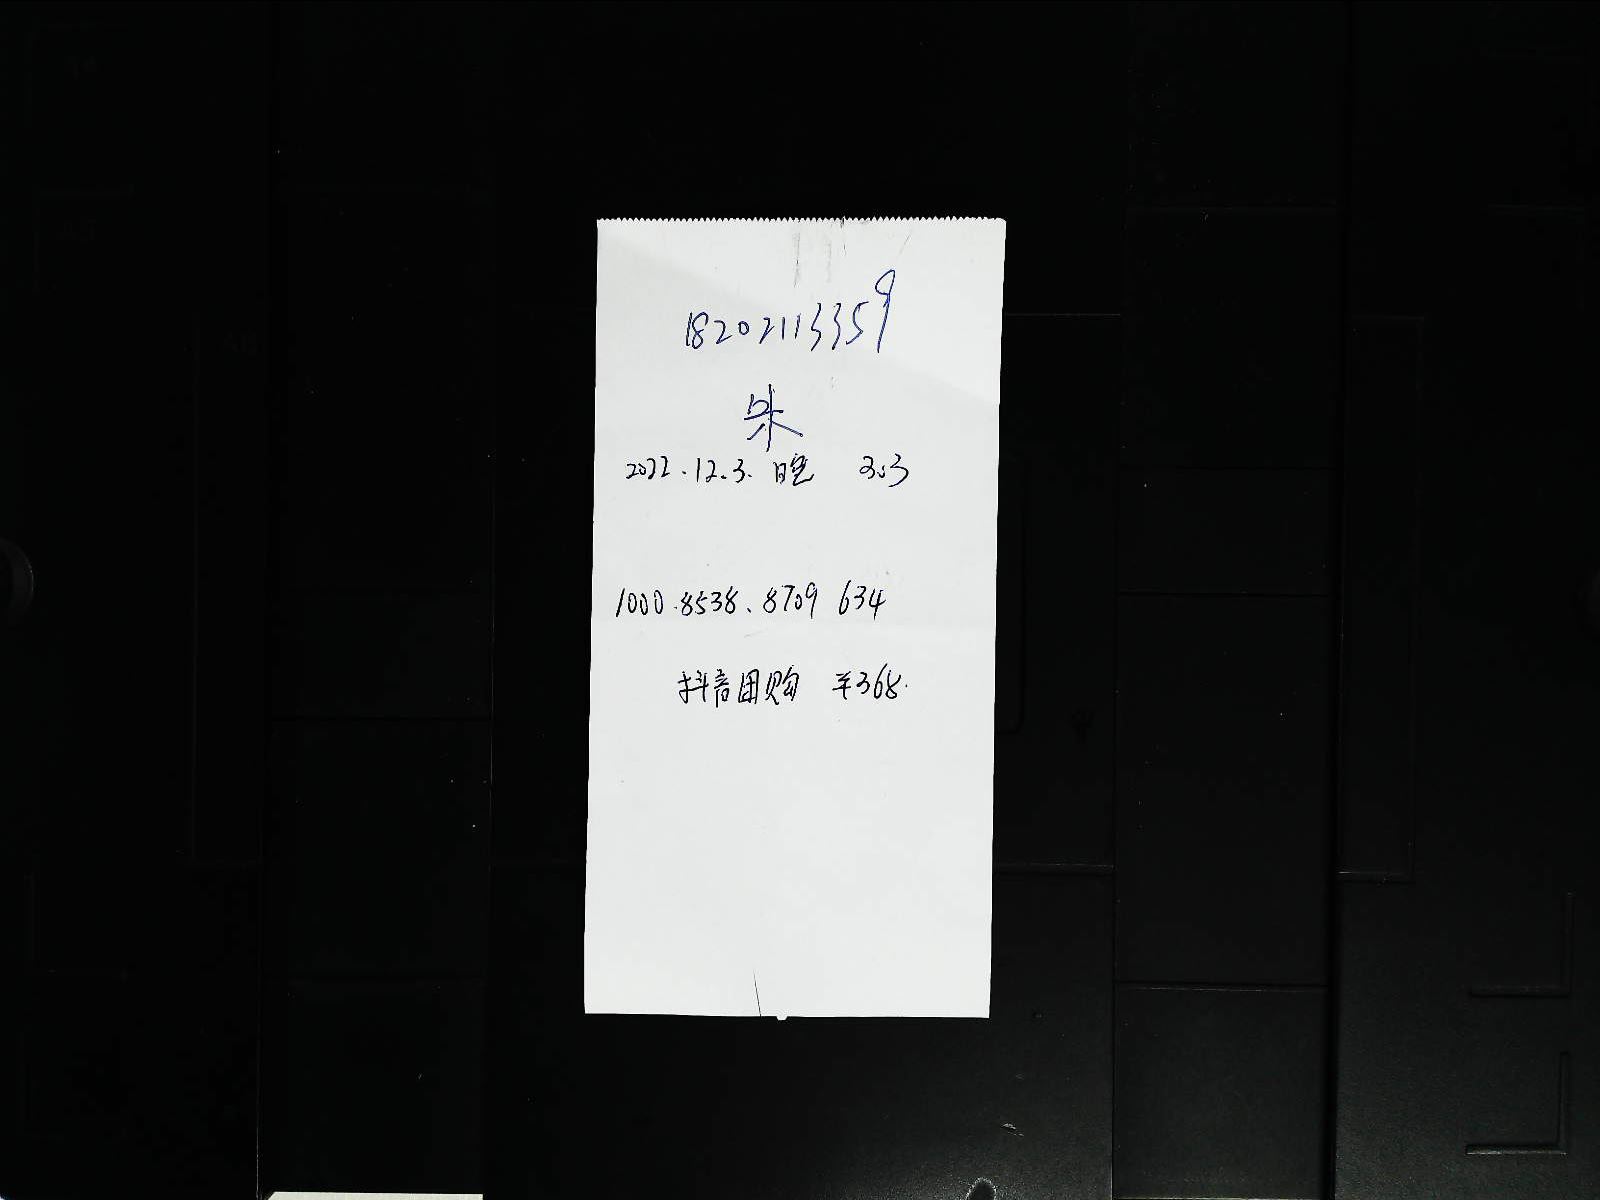 18202113359
朱
2022.12.3. 晚 303
1000.8538.8709 634
抖音团购 ¥368.